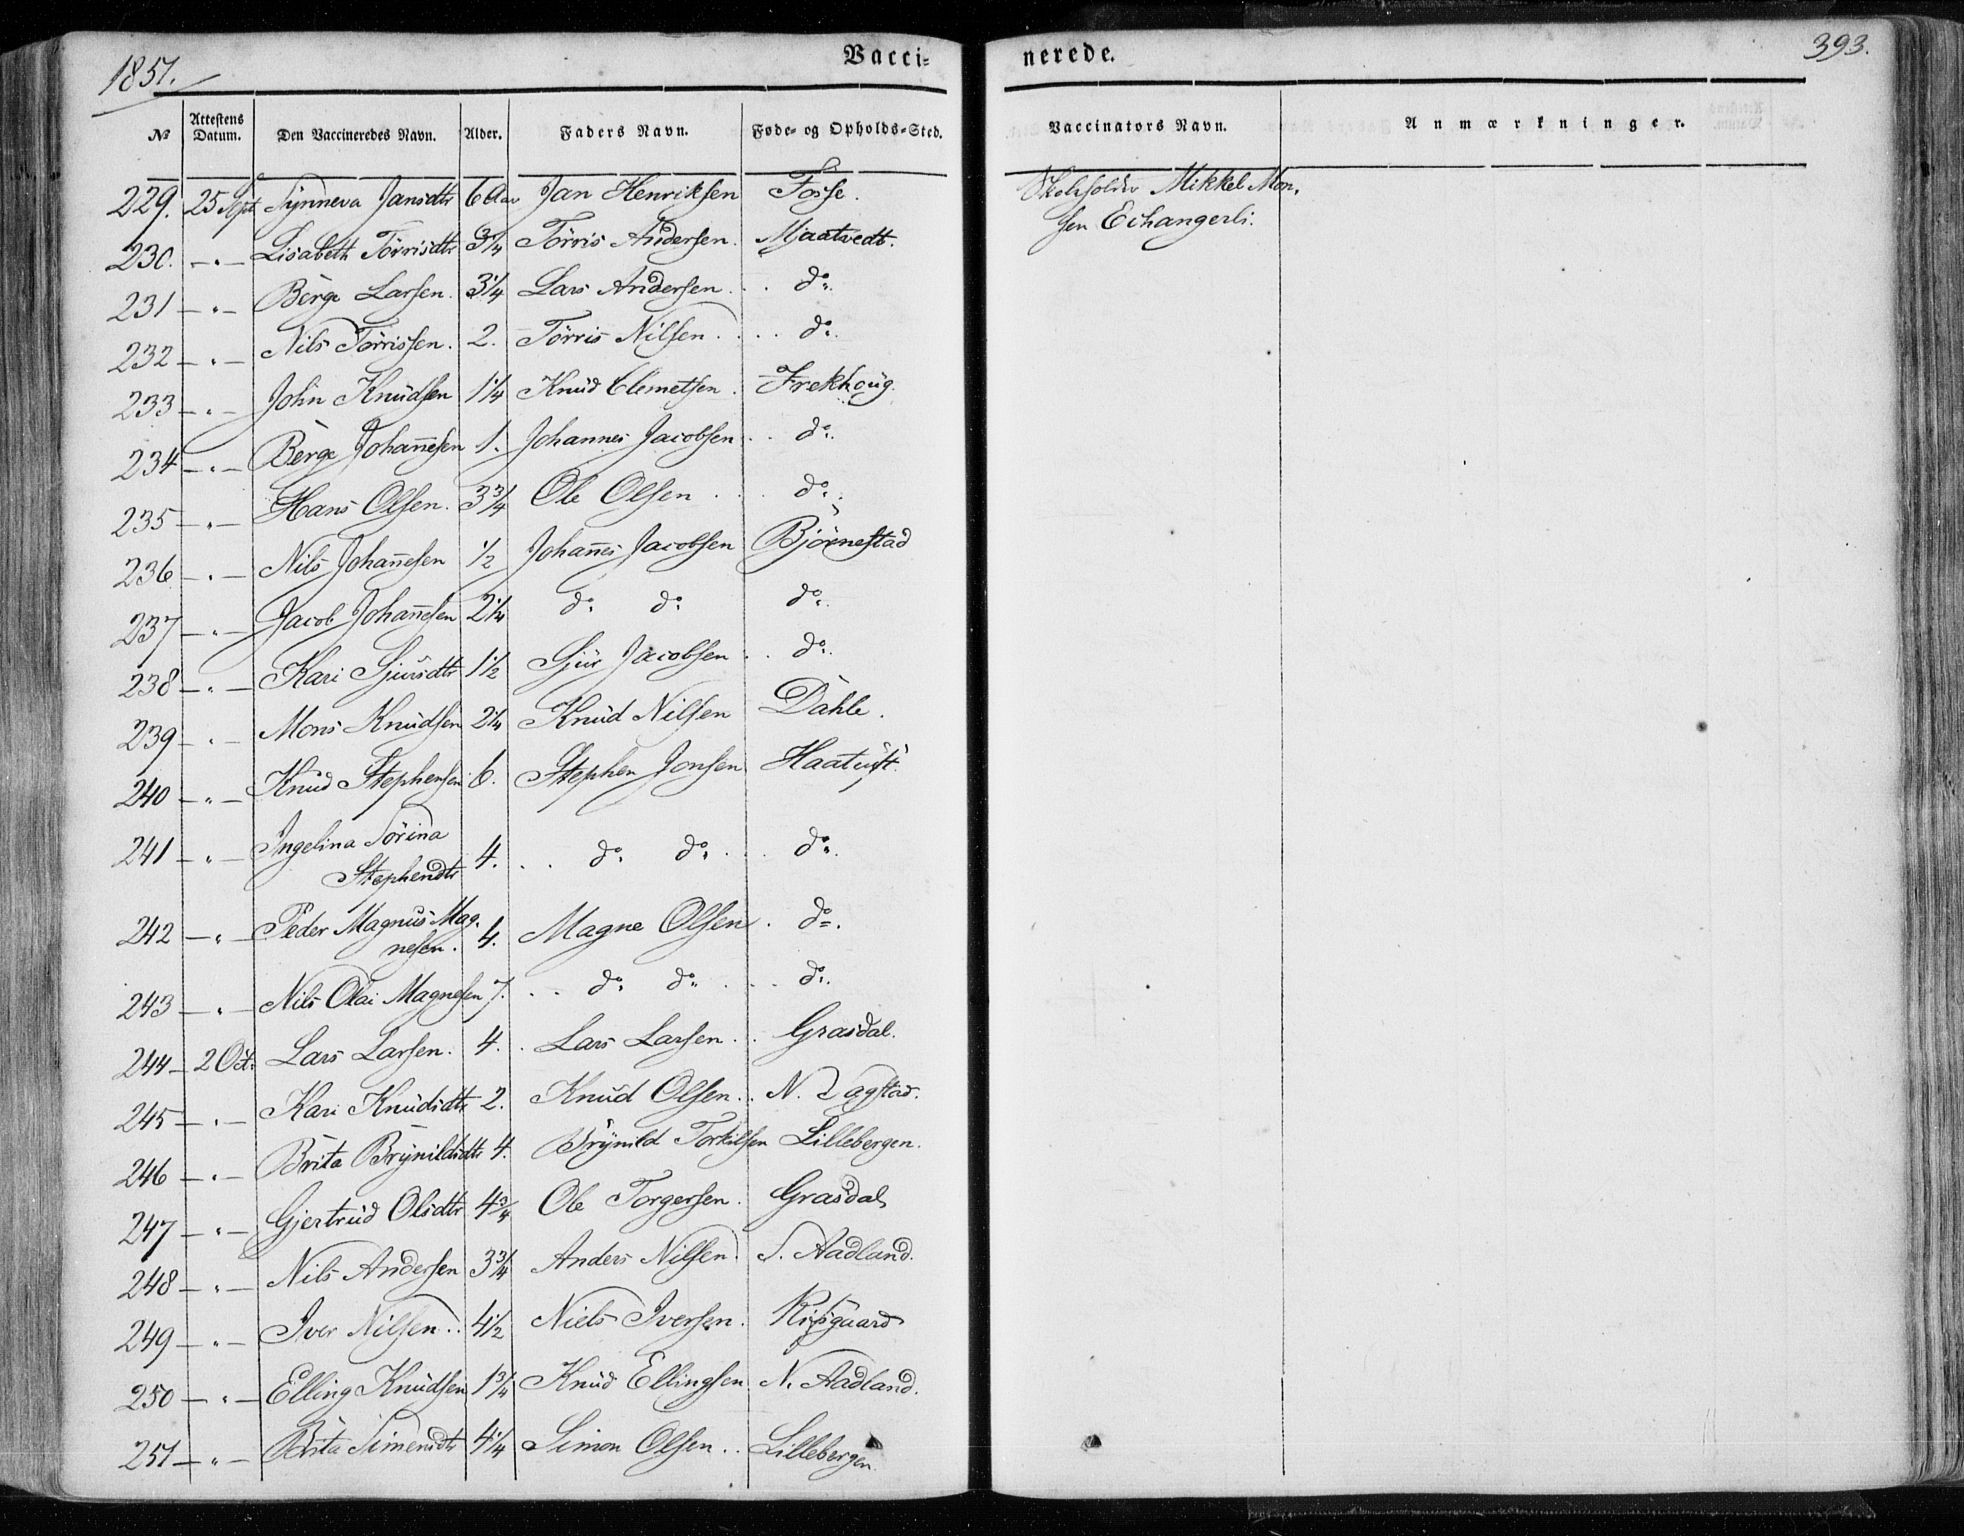 1851.
Vacci-
nerede.
393.
No
Attestens Datum.
Den Vaccineredes Navn.
Alder.
Faders Navn.
Føde- og Opholds-Sted.
Vaccinators Navn.
Anmærkninger.
229. 25 Sept. Synneva Jansdtr 6 Aar Jan Henriksen Fosse. Skoleholder Mikkel Mon-
sen Echangerli.
230. — " — Lisabeth Törrisdtr 3 1/4 Törris Andersen. Mjaatvedt.
231 — " — Børge Larsen. 3 1/4 Lars Andersen. . do.
232 — " — Nils Törrissen. 2. Törris Nilsen. . . do.
233 — " — John Knudsen 1 1/4 Knud Clemetsen. Frekhoug.
234 — " — Børge Johannesen 1. Johannes Jacobsen. . do.
235 — " — Hans Olsen. 3 3/4 Ole Olsen . . do.
236 — " — Nils Johannesen 1/2 Johannes Jacobsen Bjørnestad
237 — " — Jacob Johannesen 2 1/4 do. do. do.
238 — " — Kari Sjursdtr 1 1/2 Sjur Jacobsen . . do.
239 — " — Mons Knudsen 2 1/4 Knud Nilsen Dahle.
240 — " — Knud Stephensen 6. Stephen Jonsen Haatuft.
241 — " — Ingelina Sörina
Stephendtr 4. . . do. do. . . do.
242 — " — Peder Magnus Mag-
nesen. 4. Magne Olsen. do.
243 — " — Nils Olai Magnesen 7. . . do. do. . . do.
244 — 2 Oct. Lars Larsen. 4. . Lars Larsen . . Grasdal.
245 — " — Kari Knudsdtr 2. Knud Olsen . . N. Tagstad.
246 — " — Brita Brynildsdtr 4. Brynild Torkilsen Lillebergen.
247 — " — Gjertrud Olsdtr 4 3/4 Ole Torgersen. Grasdal
248 — " — Nils Andersen 3 3/4 Anders Nilsen. S. Aadland.
249 — " — Iver Nilsen. . 4 1/2 Niels Iversen. Risguard
250 — " — Elling Knudsen 1 3/4 Knud Ellingsen N. Aadland.
251 — " — Brita Simensdtr 4 1/4 Simon Olsen . . Lillebergen.